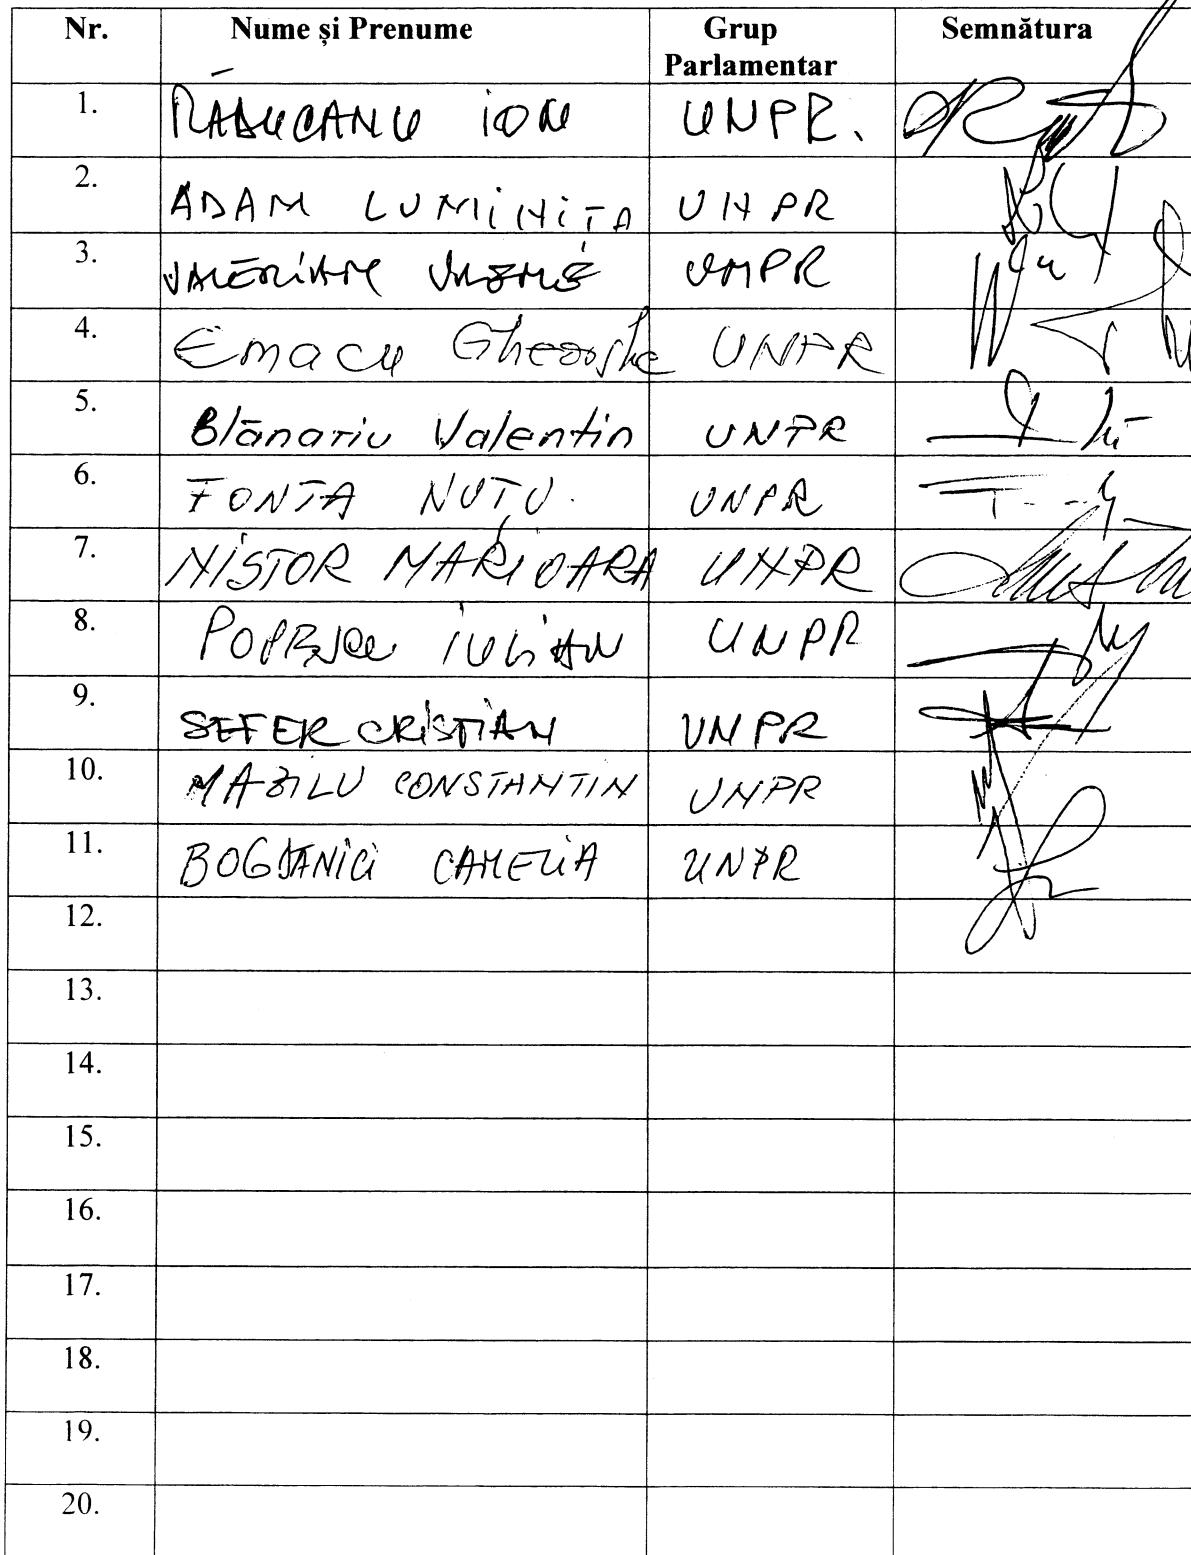 Nr. Nume și Prenume Grup Parlamentar Semnătura
1. RĂDUCANU ION UNPR.
2. ADAM LUMINIȚA UNPR
3. VALERIAN VREME UNPR
4. Emacu Gheorghe UNPR
5. Blănariu Valentin UNPR
6. FONTA NUȚU. UNPR
7. NISTOR MARIOARA UNPR
8. IULIAN UNPR
9. SEFER CRISTIAN UNPR
10. MAZILU CONSTANTIN UNPR
11. BOGDĂNICI CAMELIA UNPR
12.
13.
14.
15.
16.
17.
18.
19.
20.